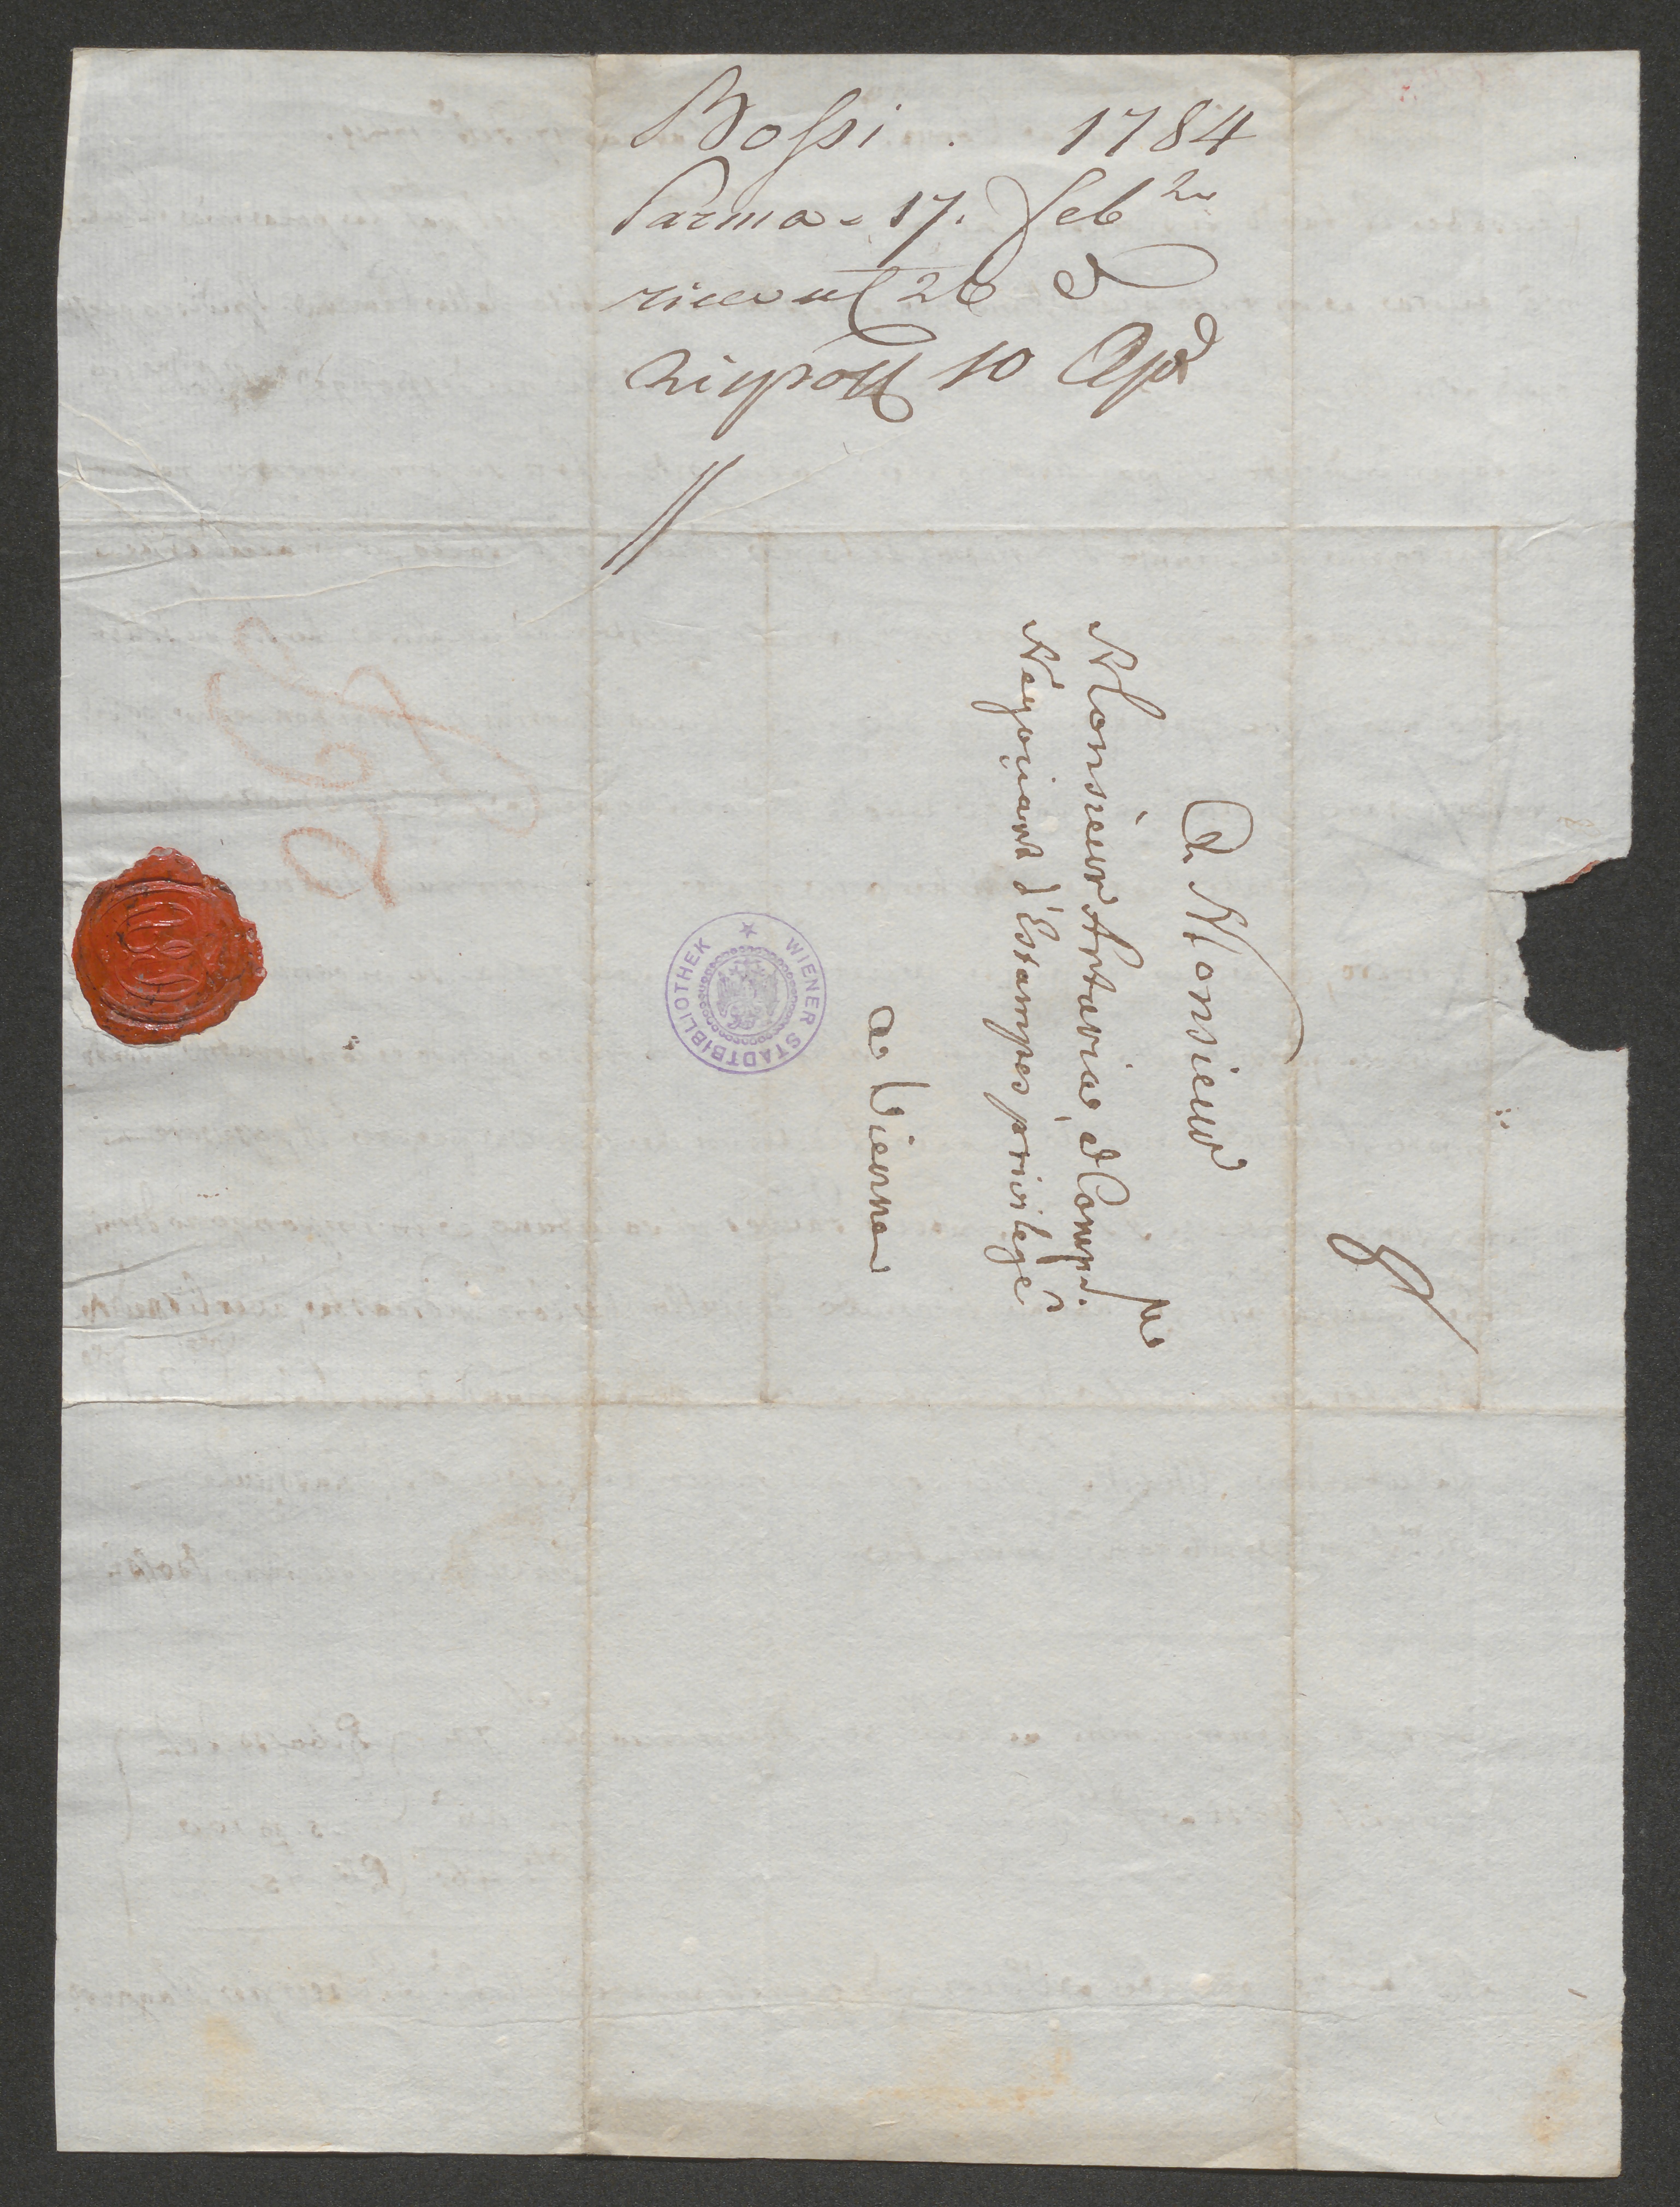 Bossi . 1784
Parma 17. Feb
ricevut 26 d
rispost 10 Apl
A Monsieur
Monsieur Artaria, et Comp.
Negoçiant d'Estampes privilegé
a Vienne
WIENER STADTBIBLIOTHEK